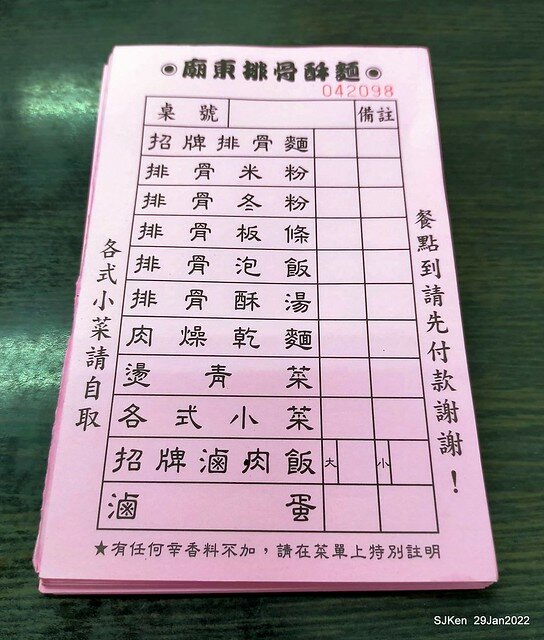 ◉廟東排骨酥麵◉
042098
桌號 備註
招牌排骨麵
排骨米粉
排骨冬粉
排骨板條
排骨泡飯
排骨酥湯
肉燥乾麵
燙青菜
各式小菜
招牌滷肉飯 大 小
滷蛋
各式小菜請自取
餐點到請先付款謝謝！
★有任何辛香料不加，請在菜單上特別註明
SJKen 29Jan2022